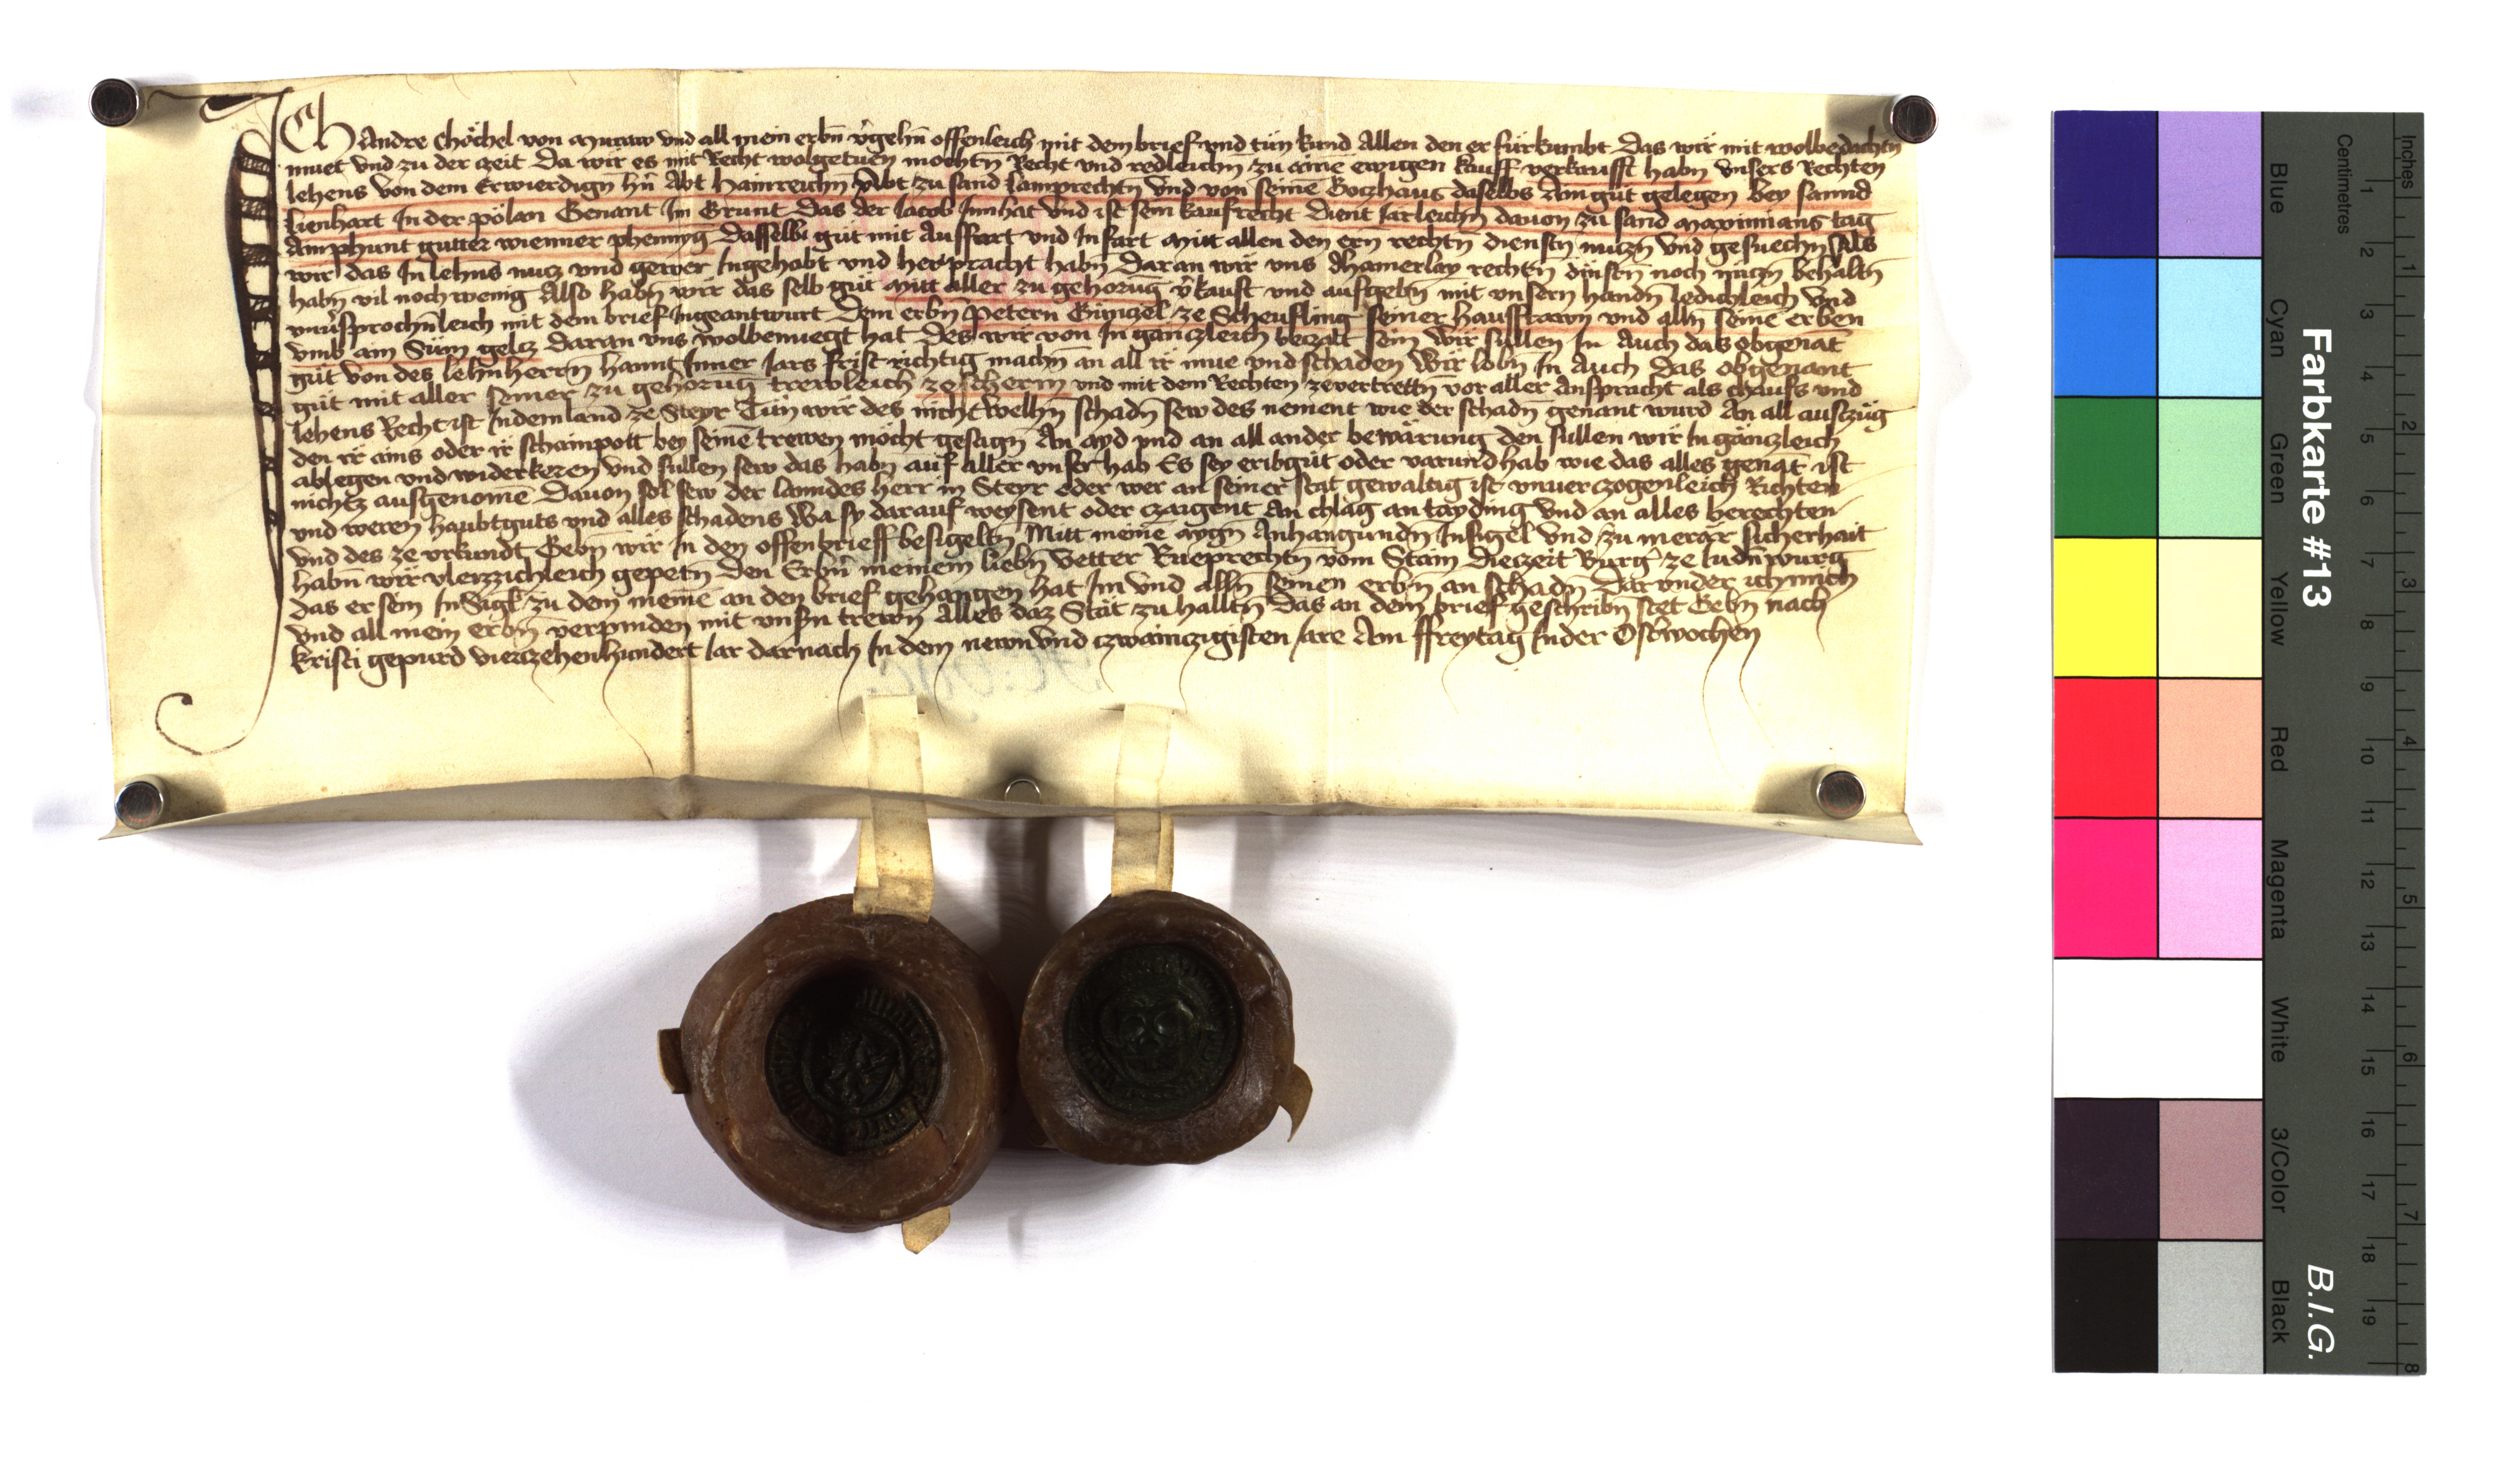 Ich Andre Chöchel von Muraw vnd all mein erbn̄ v̓gehn̄ offenleich mit dem brief vnd tün kund Allen den er fürkumbt Das wir mit wolbedachtn̄
muet vnd zu der czeit Da wir es mit Recht wolgetuen mochtn̄ Recht vnd redleichn̄ zu aime ewigen kauff verkaufft habn̄ vnsers Rechten
lehens von dem Erwierdign̄ hn̄ Abt Hainreichn̄ Abt zu sand Lamprechtn̄ vnd von seinē Goczhaus daselbs Am güt gelegen bey sannd
Lienhart In der pölan Genant Im Grunt Das der Jacob Innhat vnd ist sein kaufrecht Dient Jarleichn̄ dauon zu sand Maximians tag
Am phunt gutter wienner phennyg Dasselbi güt mit Auffart vnd Infart Mitt allen den ern̄ rechtn̄ dienstn̄ nuczn̄ vnd gesuechn̄ Als
wir das In lehns nucz vnd gewer Ingehabt vnd herpracht habn̄ Daran wir vns chamerlay rechtn̄ dinstn̄ noch nüczn̄ behaltn̄
habn̄ vil noch wenig Also habn̄ wir das selb güt Mitt aller zu gehorūg v̓kauft vnd aufgebn̄ mit vnsern handn̄ ledichleich vnd
vnu̓sprochn̄leich mit dem brief Ingeantwurt Dem erbn̄ Petern Gingel ze Scheufling seiner hausfrawn vnd alln̄ seinē erben
vmb ain Süm gelcz Daran vns wolbenuegt hat Des wir von In gänczleich beczalt sein Wir süllen In Auch das obgenāt
güt von des lehn̄herrn̄ hannt Inner Jars frist richtig machn̄ an all ir müe vnd schaden Wir lobn̄ In Auch Das obgenant
güt mit aller seiner zu gehorūg trewleich ze scherm vnd mit dem Rechten zevertrettn̄ vor aller Anspracht als chaufs vnd
lehens Recht ist Indem land ze Steyr Tün wir des nicht Welhn̄ schadn̄ sew des nement wie der schadn̄ genant wurd An all ausczüg
den ir ains oder ir schainpott bey seinē trewen möcht gesagn̄ An ayd vnd an all ander bewärung den süllen wir In gänczleich
ablegen vnd widerkeren vnd sullen sew das habn̄ auf aller vnser hab Es sey eribgüt oder varund hab wie das alles genāt ist
nichtz ausgenomē Dauon sol sew der lanndes herr in Steyr oder wer an seiner stat gewaltig ist vnuerczogenleich Richten
vnd weren haubtguts vnd alles schadens Wa sy darauf weysent oder czaigent An chlag an tayding vnd an alles berechten
vnd des ze vrkundt Gebn̄ wir In den offenbrieff besigeltn̄ Mitt meinē aygn̄ Anhangundn̄ Insigel Vnd zu merär sicherhait
habn̄ wir vleizzichleich gepetn̄ Den Erbn̄ meinem liebn̄ Vetter Rueprechtn̄ vom Stain Dieczeit Burg̓ ze ludn̄wurg
das er sein InSigl zu dem meinē an den brief gehangen hat Im vnd alln̄ seinen erbn̄ an schadn̄ Darvnder ich mich
vnd all mein erbn̄ verpinden mit vnsn̄ trewn̄ Alles daz Stät zu halltn̄ Das an dem brief geschribn̄ stet Gebn̄ nach
kristi gepurd vierczehenhundert Jar darnach In dem newn vnd czwainczigisten Jare Am ffreytag In der Ostʼwochen
Farbkarte #13
B.I.G.
Centimetres
Inches
Blue
Cyan
Green
Yellow
Red
Magenta
White
3/Color
Black
1 2 3 4 5 6 7 8 9 10 11 12 13 14 15 16 17 18 19
1 2 3 4 5 6 7 8